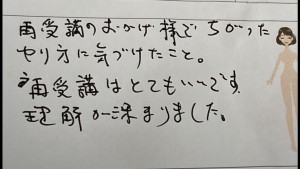 再受講のおかげ様でちがった
やり方に気づけたこと。
再受講はとてもいいです
理解が深まりました。